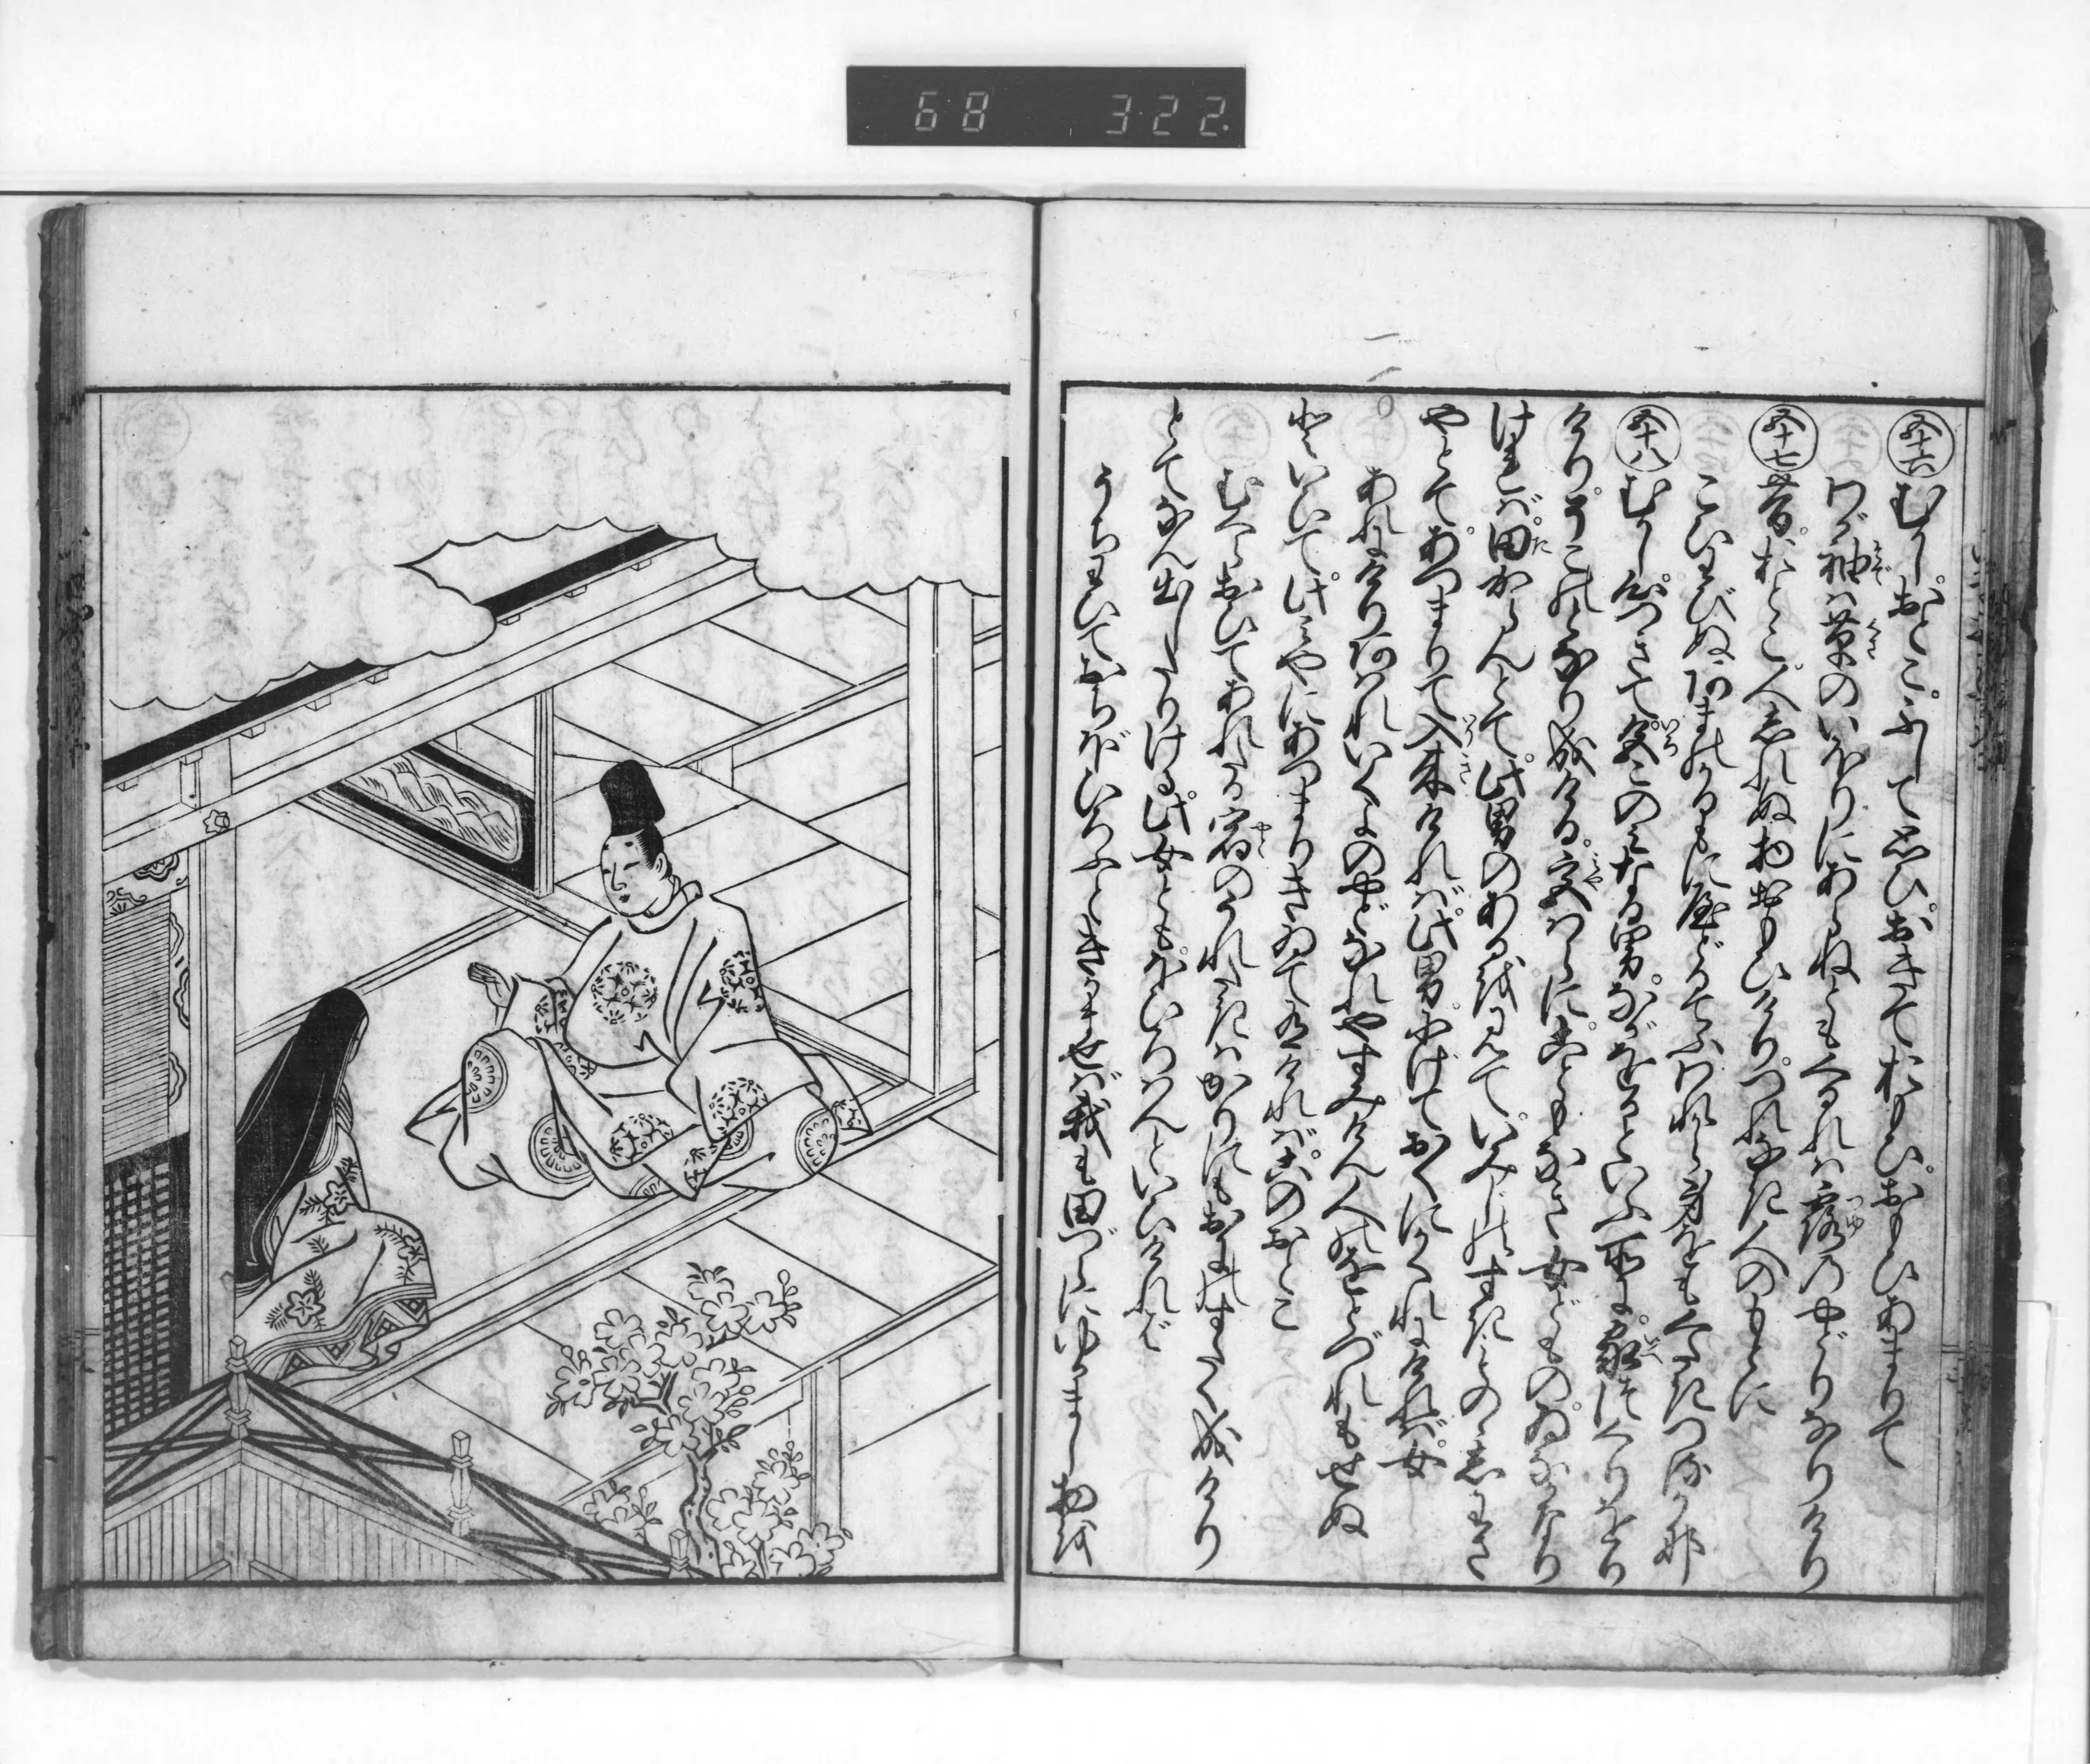 68 322.
五十六 むかしおとこふして思ひおきておもひおもひあまりて
わが袖は草のいほりにあらねともくるれは露のやどりなりけり
五十七 昔おとこ人しれぬ物おもひけりつれなき人のもとに
こひわびぬあまのかるもにやどるてふわれから身をもくだきつるかな
五十八 むかし心つきて色このみなる男ながをかといふ所に家つくりてをり
けりそこのとなり成ける宮はらにこともなき女どものゐなかなり
ければ田からんとて此男のあるを見ていみじのすきものゝしわさ
やとてあつまりて入来ければ此男にげておくにかくれにければ女
あれにけりあはれいくよのやどなれやすみけん人のをとづれもせぬ
といひて此みやにあつまりきゐて有ければ此おとこ
むぐらおひてあれたる宿のうれたきはかりにもおにのすだく成けり
とてなん出したりける此女ともほひろはんといひければ
うちわひておちぼひろふときかませば我も田づらにゆかまし物を